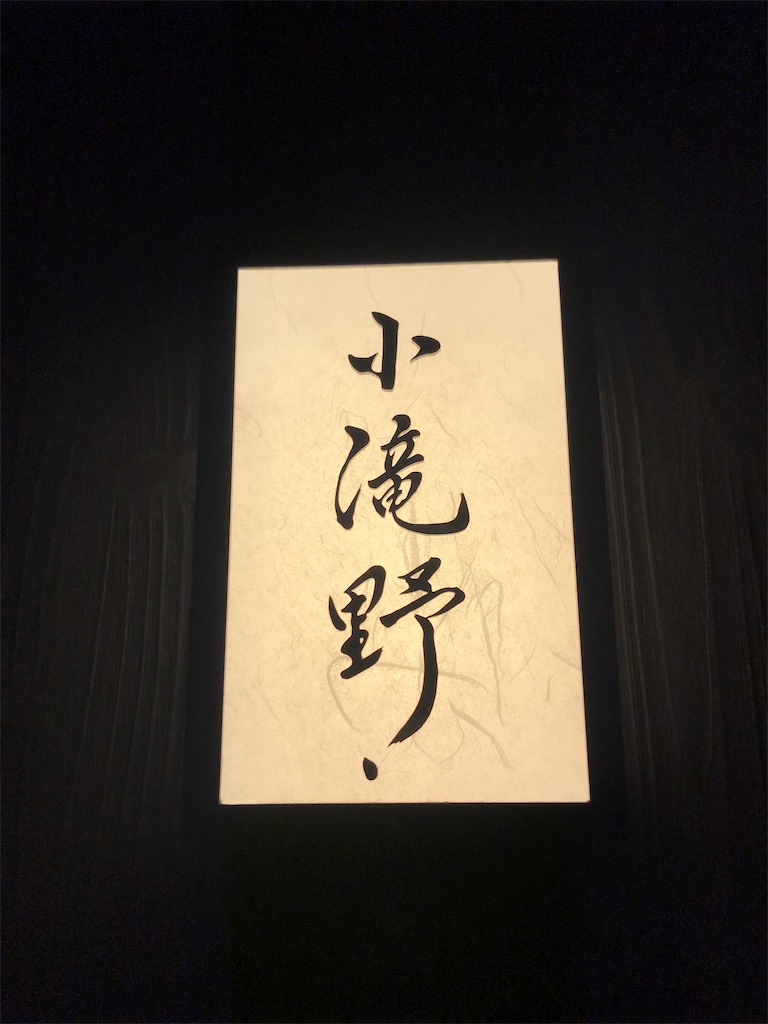 小滝野.